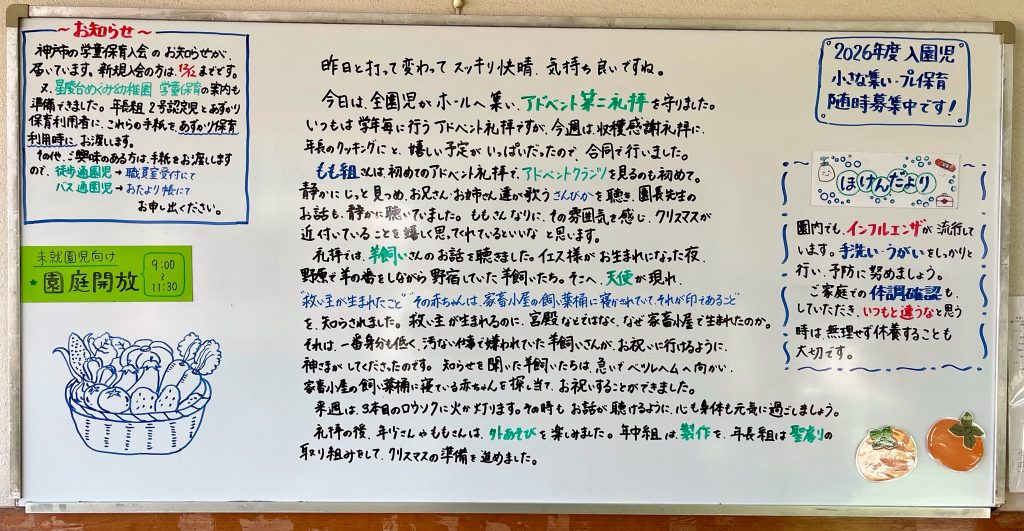 ～お知らせ～
神戸市の学童保育入会のお知らせが、
届いています。新規入会の方は、12/12までです。
又、星陵台めぐみ幼稚園 学童保育の案内も
準備できました。年長組、2号認定児とあずかり
保育利用者に、これらの手紙を、あずかり保育
利用時に、お渡しします。
その他、ご興味のある方は、手紙をお渡しします
ので、徒歩通園児→職員室受付にて
バス通園児→おたより帳にて
お申し出ください。
未就園児向け
園庭開放
9:00
～
11:30
昨日と打って変わってスッキリ快晴、気持ち良いですね。
今日は、全園児がホールへ集い、アドベント第二礼拝を守りました。
いつもは学年毎に行うアドベント礼拝ですが、今週は、収穫感謝礼拝に、
年長のクッキングにと、嬉しい予定がいっぱいだったので、合同で行いました。
もも組さんは、初めてのアドベント礼拝で、アドベントクランツを見るのも初めて。
静かにじっと見つめ、お兄さん・お姉さん達が歌うさんびかを聴き、園長先生の
お話も、静かに聴いていました。ももさんなりに、その雰囲気を感じ、クリスマスが
近付いていることを嬉しく思ってくれているといいなと思います。
礼拝では、羊飼いさんのお話を聴きました。イエス様がお生まれになった夜、
野原で羊の番をしながら野宿していた羊飼いたち。そこへ、天使が現れ、
"救い主が生まれたこと""その赤ちゃんは、家畜小屋の飼い葉桶に寝かされていて、それが印であること"
を、知らされました。救い主が生まれるのに、宮殿などではなく、なぜ家畜小屋で生まれたのか。
それは、一番身分も低く、汚ない仕事で嫌われていた羊飼いさんが、お祝いに行けるように、
神さまがしてくださったのです。知らせを聞いた羊飼いたちは、急いでベツレヘムへ向かい、
家畜小屋の飼い葉桶に寝ている赤ちゃんを探し当て、お祝いすることができました。
来週は、3本目のロウソクに火が灯ります。その時もお話が聴けるように、心も身体も元気に過ごしましょう。
礼拝の後、年少さんやももさんは、外あそびを楽しみました。年中組は、製作を、年長組は聖劇の
取り組みをして、クリスマスの準備を進めました。
2026年度 入園児
小さな集い・プレ保育
随時募集中です！
ほけんだより
園内でも、インフルエンザが流行して
います。手洗い・うがいをしっかりと
行い、予防に努めましょう。
ご家庭での体調確認も、
していただき、いつもと違うなと思う
時は、無理せず休養することも
大切です。